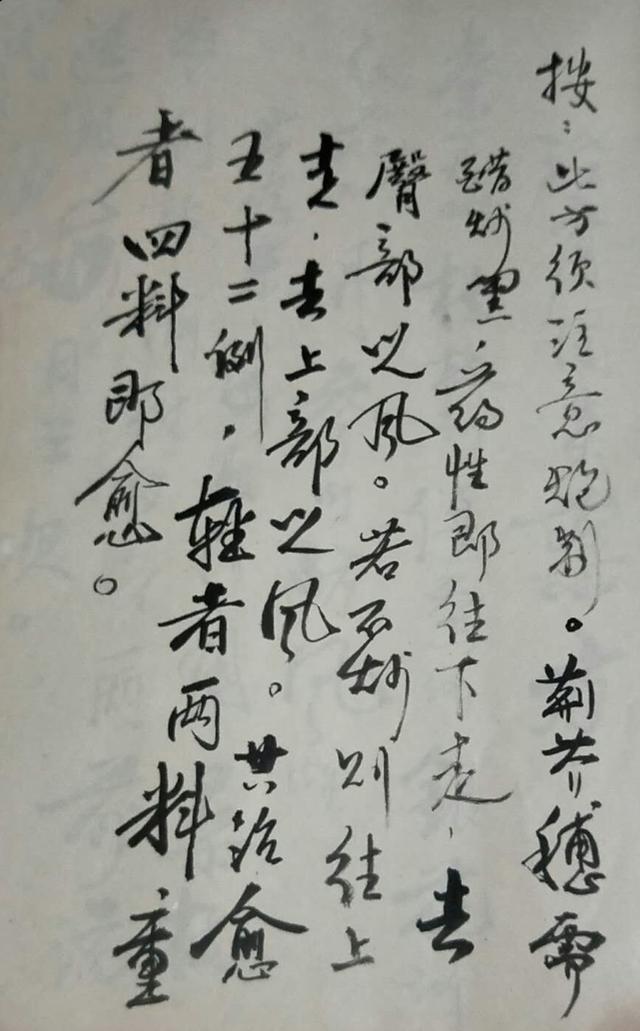 按：此方须注意炮制。荆芥穗需
醋炒黑，药性即往下走，去
臀部以风。若不炒则往上
走，去上部以风。共治愈
五十二例，轻者两料重
者四料即愈。